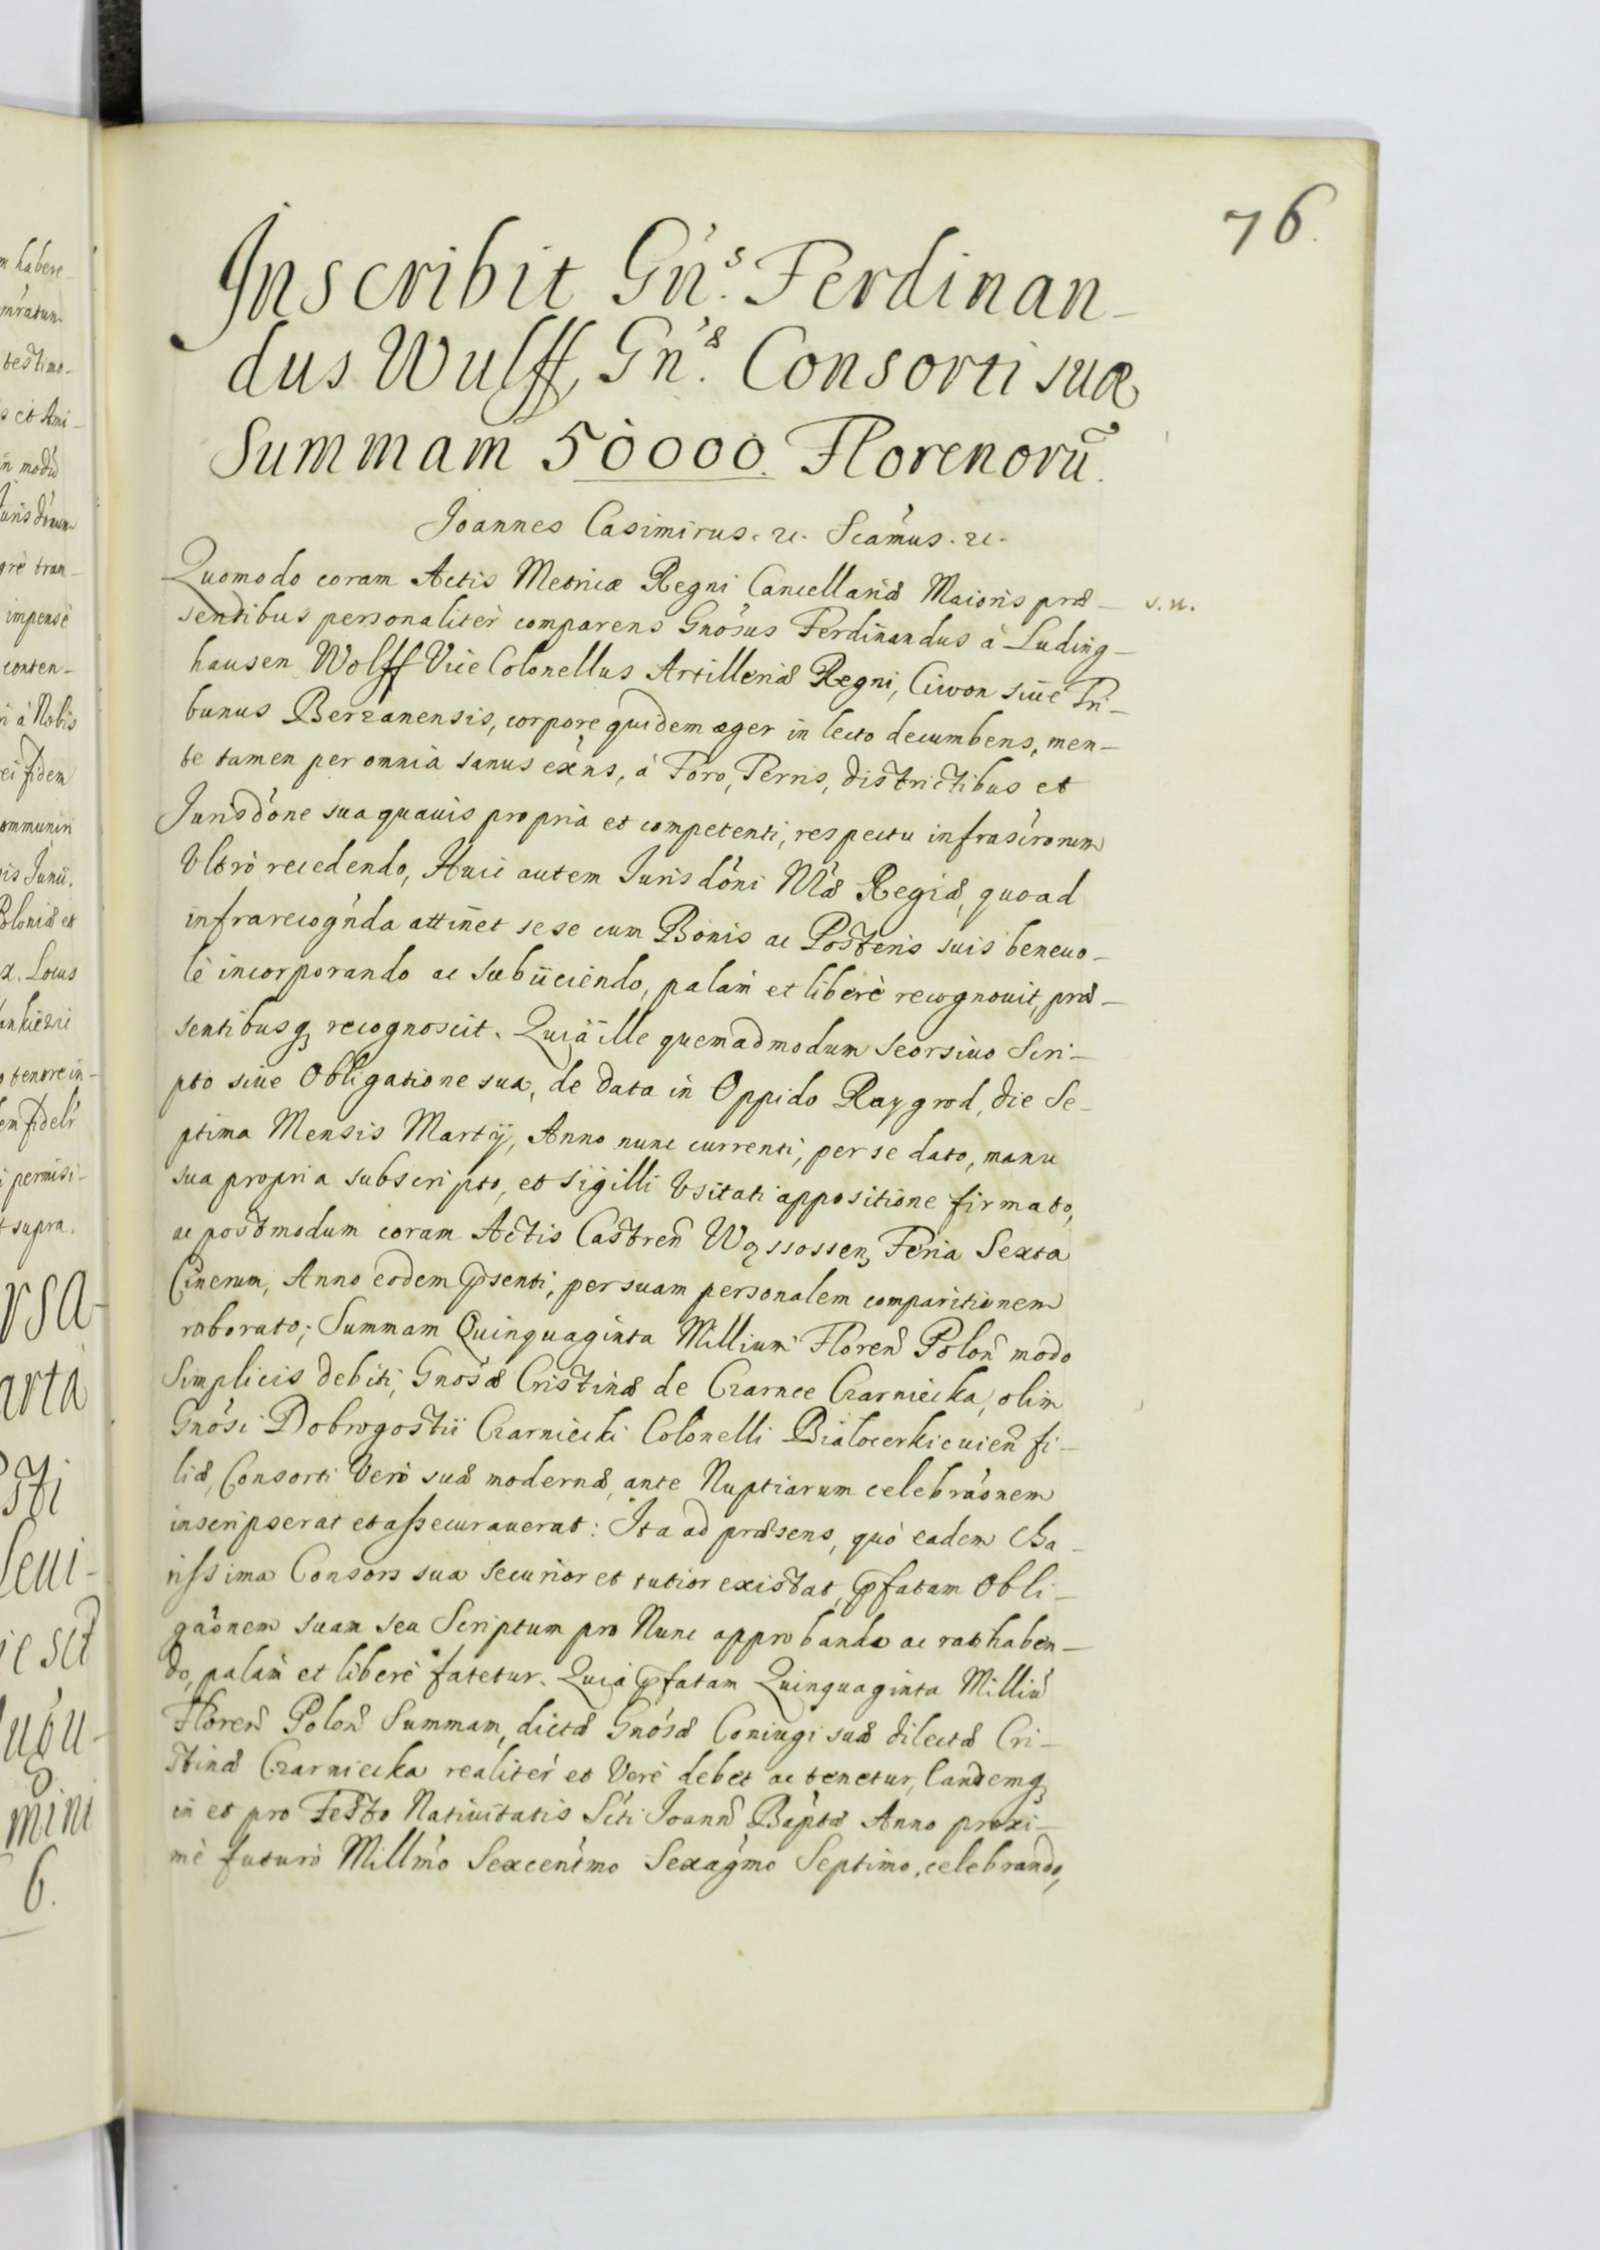 76.
Inscribit Gn̄s. Ferdinan-
dus Wulff, Gn̄æ. Consorti suæ
Summam 50000. Florenorū.
Joannes Casimirus. &c. Scāmus. &c.
Quomodo coram Actis Metricæ Regni Cancellariæ Maioris præ- s.n.
sentibus personalitèr comparens Gnōsus Ferdinandus à Luding-
hausen Wolff Vice Colonellus Artilleriæ Regni, Ciwon siue Tri-
bunus Berzanensis, corpore quidem æger in lecto decumbens, men-
te tamen per omnia sanus exn̄s, à Foro, Terris, districtibus et
Jurisdōne sua quauis propria et competenti, respectu infrascrorum
Vltrò recedendo, Huic autem Jurisdōni Mæ Regiæ, quoad
infrarecogn̄da attinet sese cum Bonis ac Posteris suis beneuo-
lè incorporando ac subijciendo, palam et liberè recognouit, præ-
sentibusq3 recognoscit. Quia ille quemadmodum seorsiuo Scri-
pto siue Obligatione sua, de data in Oppido Raygrod, die Se-
ptima Mensis Martij, Anno nunc currenti, per se dato, manu
sua propria subscripto, et sigilli Vsitati appositione firmato,
ac postmodum coram Actis Castren̄ Wąssossen3 Feria Sexta
Cinerum, Anno eodem p̄senti, per suam personalem comparitionem
roborato; Summam Quinquaginta Millium Floren̄ Polon̄ modo
Simplicis debiti, Gnōsæ Cristinæ de Czarnce Czarniecka, olim
Gnōsi Dobrogostii Czarniecki Colonelli Bialocerkieuien̄ fi-
liæ, Consorti Verò suæ modernæ, ante Nuptiarum celebrāonem
inscripserat et assecurauerat: Ita ad præsens, quò eadem Cha-
rissima Consors sua securior et tutior existat, p̄fatam Obli-
gāonem suam seu Scriptum pro Nunc approbando ac rathaben-
do, palam et liberè fatetur. Quia p̄fatam Quinquaginta Milliū
Floren̄ Polon̄ Summam, dictæ Gnōsæ Coniugi suæ dilectæ Cri-
stinæ Czarniecka realitèr et Verè debet ac tenetur, Eandemq3
in et pro Festo Natiuitatis Scti Joann̄ Baptæ Anno proxi-
mè futuro Millm̄o Sexcentm̄o Sexagm̄o Septimo, celebrando,